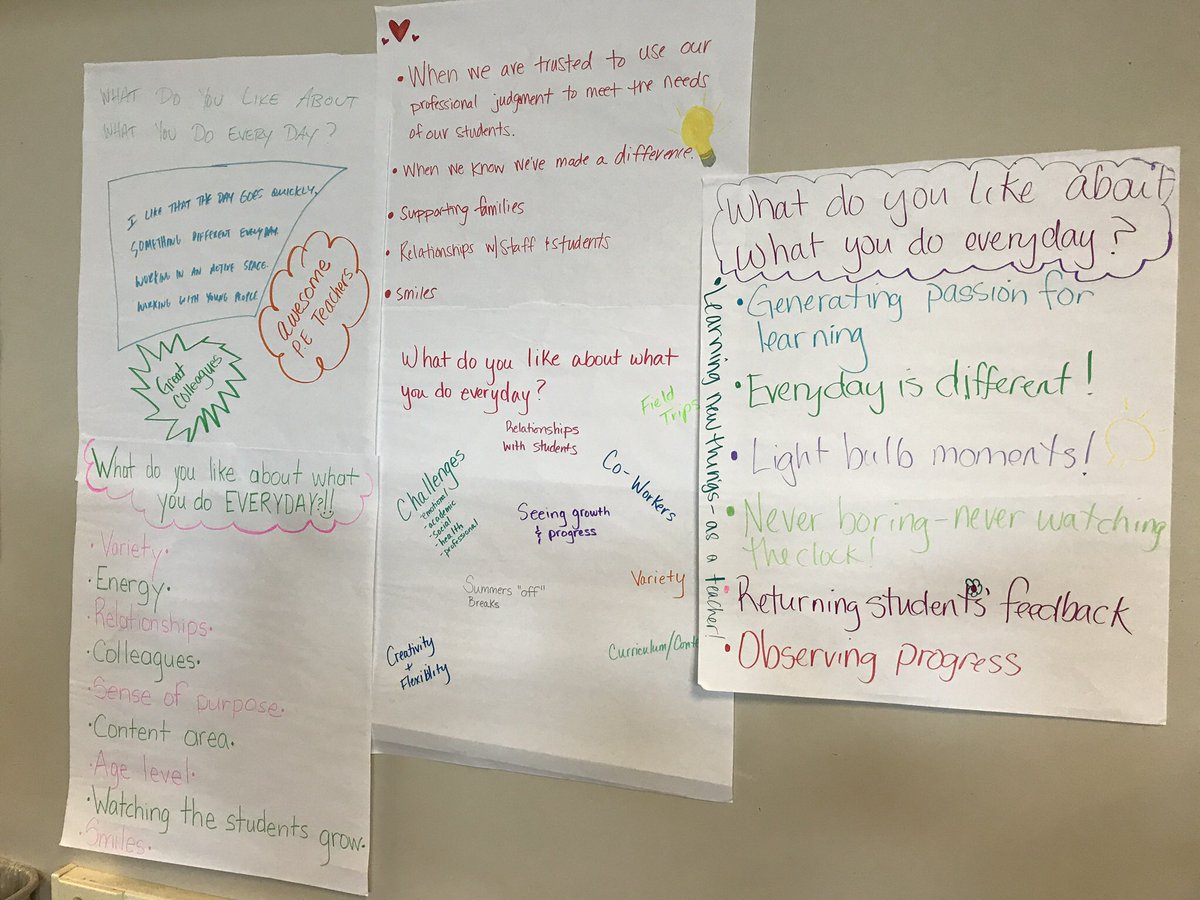 WHAT DO YOU LIKE ABOUT
WHAT YOU DO EVERY DAY?
I LIKE THAT THE DAY GOES QUICKLY,
SOMETHING DIFFERENT EVERYDAY.
WORKING IN AN ACTIVE SPACE.
WORKING WITH YOUNG PEOPLE
awesome
P.E Teachers
Great
Colleagues
What do you like about what
you do EVERYDAY?!!
• Variety.
• Energy.
• Relationships.
• Colleagues.
• Sense of purpose.
• Content area.
• Age level.
• Watching the students grow.
• Smiles.
• When we are trusted to use our
professional judgment to meet the needs
of our students.
• When we know we've made a difference.
• Supporting families
• Relationships w/staff & students
• smiles
What do you like about what
you do everyday?
Field
Trips
Relationships
with students
Challenges
-emotional
-academic
-social
-health
-professional
Co-Workers
Seeing growth
& progress
Summers "off"
Breaks
Variety
Creativity
+
Flexiblity
Curriculum/Conte
What do you like about
what you do everyday?
• Learning new things - as a teacher!
• Generating passion for
learning
• Everyday is different!
• Light bulb moments!
• Never boring - never watching
the clock!
• Returning students' feedback
• Observing progress